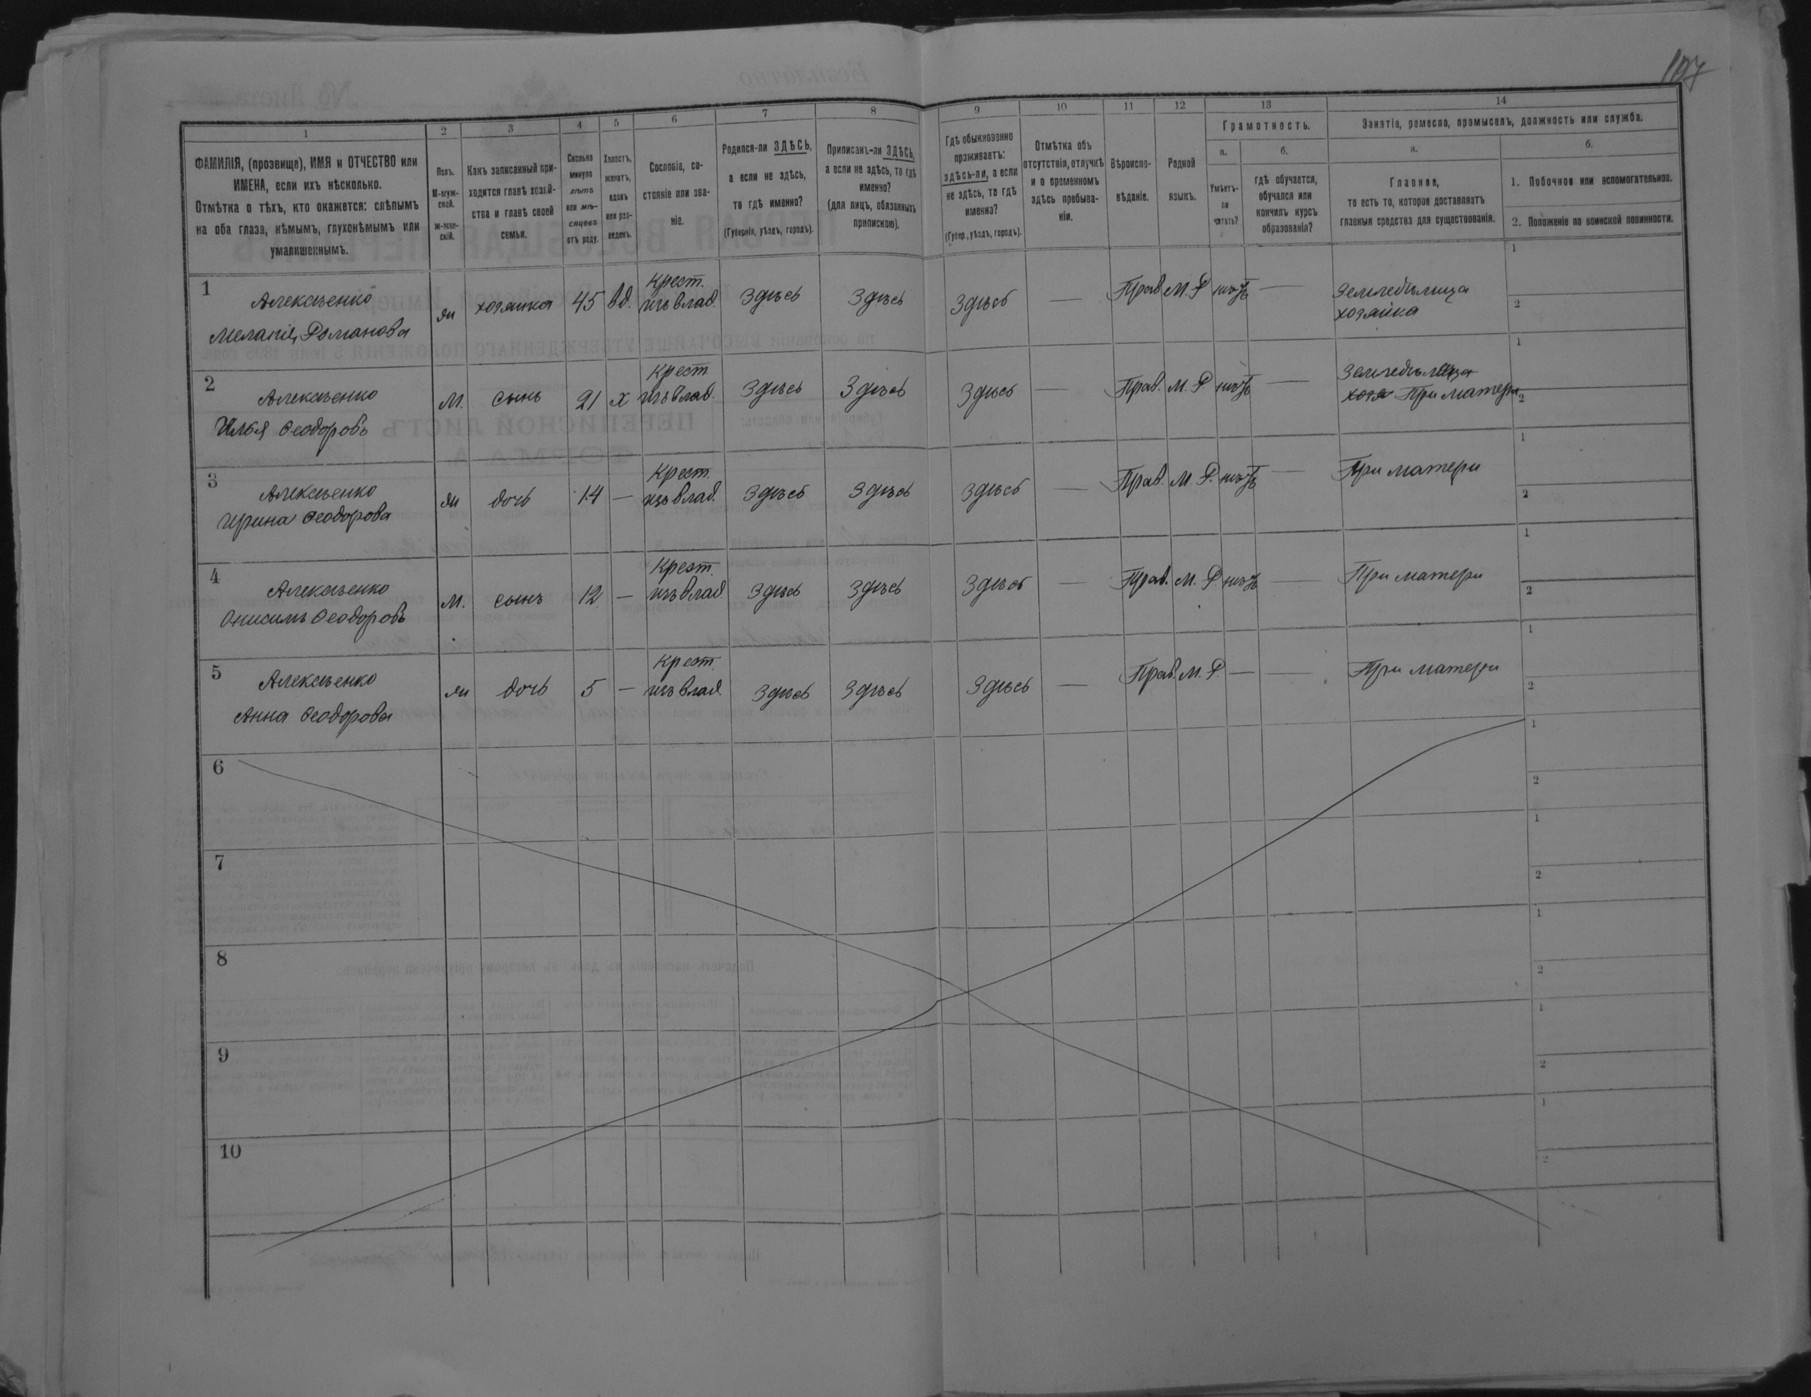 107
1 2 3 4 5 6 7 8 9 10 11 12 13 14
ФАМИЛІЯ, (прозвище), ИМЯ и ОТЧЕСТВО или
ИМЕНА, если ихъ нѣсколько.
Отмѣтка о тѣхъ, кто окажется: слѣпымъ
на оба глаза, нѣмымъ, глухонѣмымъ или
умалишеннымъ.
Полъ.
М-муж-
ской.
Ж-жен-
скій.
Какъ записанный при-
ходится главѣ хозяй-
ства и главѣ своей
семьи.
Сколько
минуло
лѣтъ
или мѣ-
сяцевъ
отъ роду.
Холостъ,
женатъ,
вдовъ
или раз-
веденъ.
Сословіе, со-
стояніе или зва-
ніе.
Родился-ли ЗДѢСЬ,
а если не здѣсь,
то гдѣ именно?
(Губернія, уѣздъ, городъ).
Приписанъ-ли ЗДѢСЬ,
а если не здѣсь, то гдѣ
именно?
(для лицъ, обязанныхъ
припискою).
Гдѣ обыкновенно
проживаетъ:
здѣсь-ли, а если
не здѣсь, то гдѣ
именно?
(Губер., уѣздъ, городъ).
Отмѣтка объ
отсутствіи, отлучкѣ
и о временномъ
здѣсь пребыва-
ніи.
Вѣроиспо-
вѣданіе.
Родной
языкъ.
Грамотность.
а.
Умѣетъ-
ли
читать?
б.
гдѣ обучается,
обучался или
кончилъ курсъ
образованія?
Занятіе, ремесло, промыселъ, должность или служба.
а.
Главное,
то есть то, которое доставляетъ
главныя средства для существованія.
б.
1. Побочное или вспомогательное.
2. Положеніе по воинской повинности.
1 Алексѣенко
Меланія Романова
ж хозяйка 45 вд. Крест.
изъ влад. Здѣсь Здѣсь Здѣсь — Прав. М. Р. нѣтъ — Земледѣлица
хозяйка
1
2
2 Алексѣенко
Илья Ѳеодоровъ
м. сынъ 21 х Крест.
изъ влад. Здѣсь Здѣсь Здѣсь — Прав. М. Р. нѣтъ —
При матери
1
2
3 Алексѣенко
Ирина Ѳеодорова
ж дочь 14 — Крест.
изъ влад. Здѣсь Здѣсь Здѣсь — Прав. М. Р. нѣтъ — При матери
1
2
4 Алексѣенко
Онисимъ Ѳеодоровъ
м. сынъ 12 — Крест.
изъ влад. Здѣсь Здѣсь Здѣсь — Прав. М. Р. нѣтъ — При матери
1
2
5 Алексѣенко
Анна Ѳеодорова
ж дочь 5 — Крест.
изъ влад. Здѣсь Здѣсь Здѣсь — Прав. М. Р. — — При матери
1
2
6
1
2
7
1
2
8
1
2
9
1
2
10
1
2